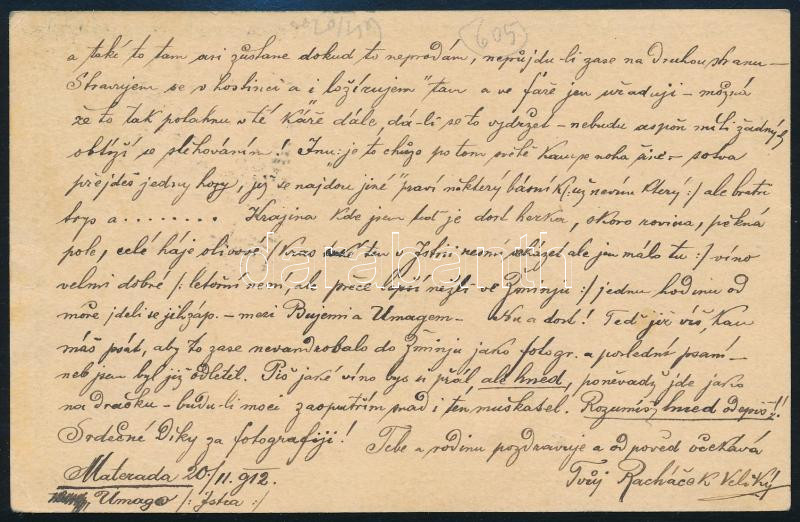 605
a také to tam asi zůstane dokud to neprodám, nepřijdu-li zase na druhou stranu –
Stravujem se v hostinci a i ložírujem tam a ve fáře jen uřaduji – možná
že to tak potáhnu v té "Káře" dále, dá-li se to vydržet – nebudu aspoň míti žádných
obtíží se stěhováním! Inu: je to chůze po tom světě kam se noha šine – sotva
přejdeš jedny hory, již se najdou jiné" praví některý básník /: už nevím který :/ ale bratře
boys a ........ Krajina kde jsem teď je dost hezká, skoro rovina, pěkná
pole, celé háje olivové /: Kras ten v Istrii nesmí scházet ale jen málo tu :/ víno
velmi dobré /: letošní není, ale přece lepší nežli ve Žminju :/ jednu hodinu od
moře jdeli se jihzáp. – mezi Bujemi a Umagem – Nu a dost! Teď již víš, kam
máš psát, aby to zase nevandrovalo do Žminju jako fotogr. a poslední psaní –
neb jsem byl již odletěl. Piš jaké víno bys si přál ale hned, poněvadž jde jako
na dračku – budu-li moci zaopatřím snad i ten muškatel. Rozumíš, hned odepiš!
Srdečné Díky za fotografiji! Tebe a rodinu pozdravuje a odpověd očekává
Materada 20/11. 912. Tvůj Racháček Veliký
Umago /: Istra :/
darabanth